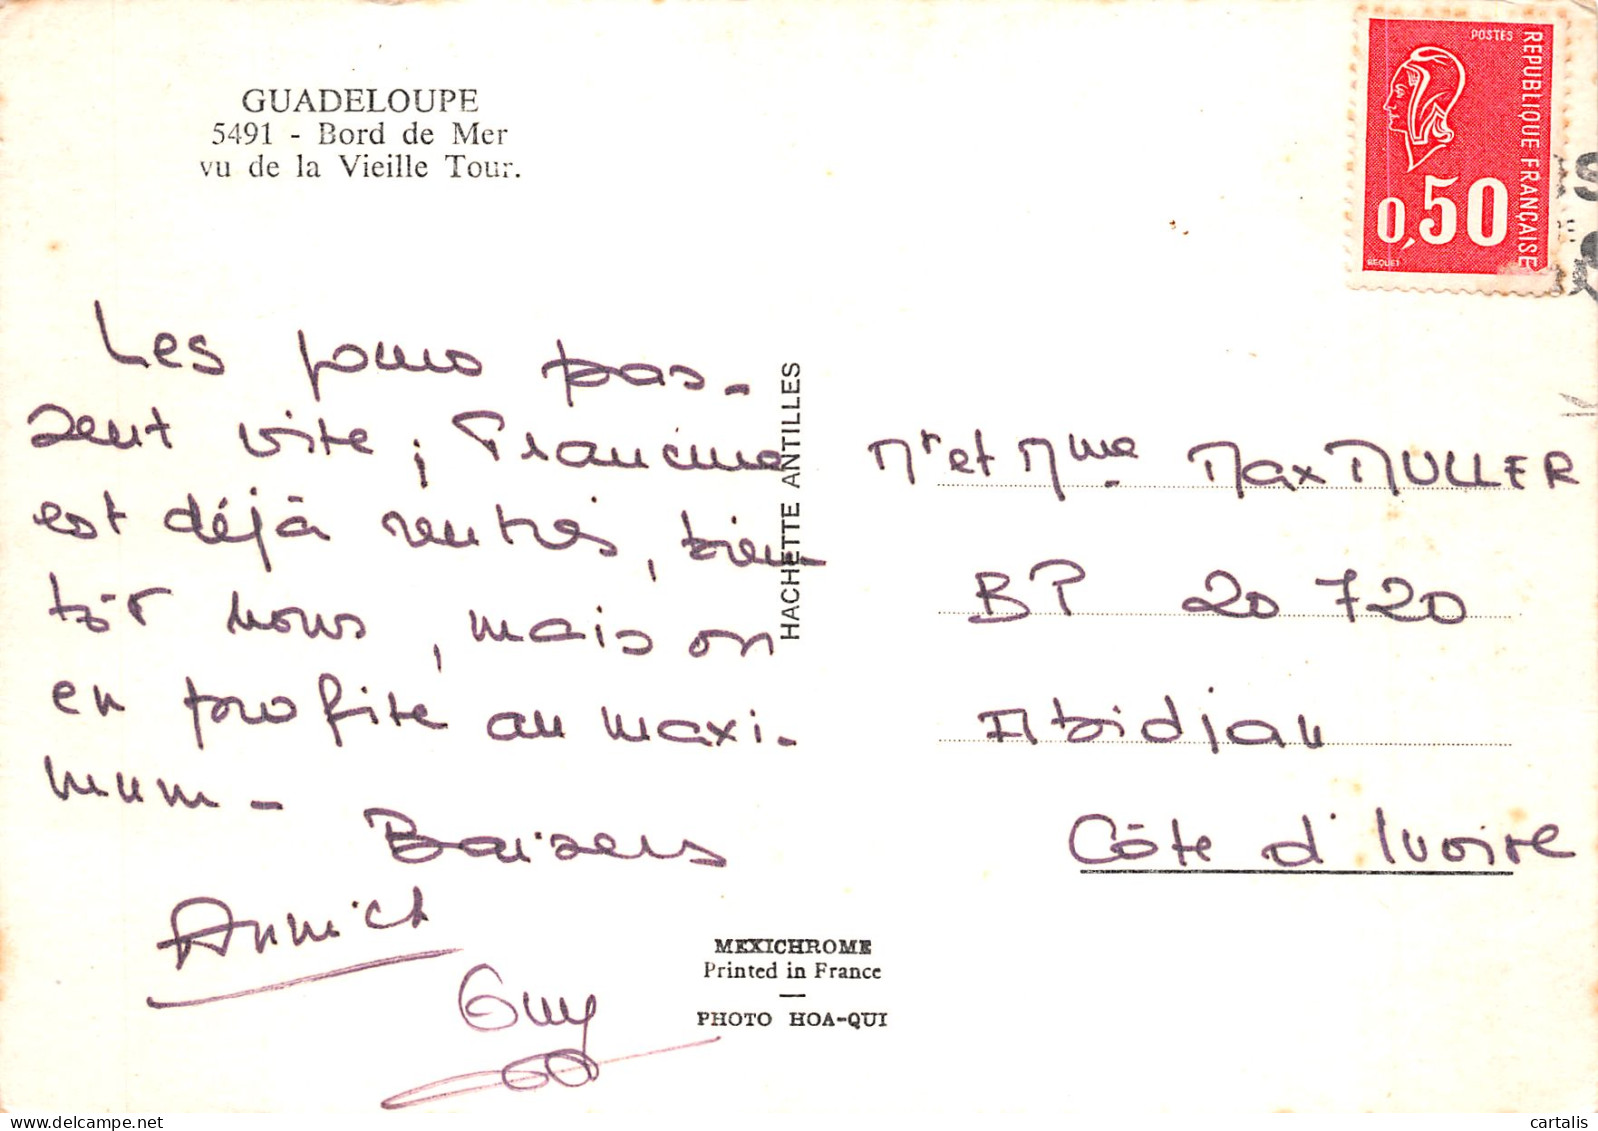 GUADELOUPE
5491 - Bord de Mer
vu de la Vieille Tour.
POSTES
REPUBLIQUE FRANÇAISE
0,50
BEQUET
Les jours pas-
sent vite,
est déjà rentrés, bien
tôt nous, mais on
en profite au maxi-
mum -
Baisers
Annick
Guy
HACHETTE ANTILLES
Mr et Mme Max MULLER
BP 20 720
Abidjan
Côte d'Ivoire
MEXICHROME
Printed in France
PHOTO HOA-QUI
cartalis delcampe.net